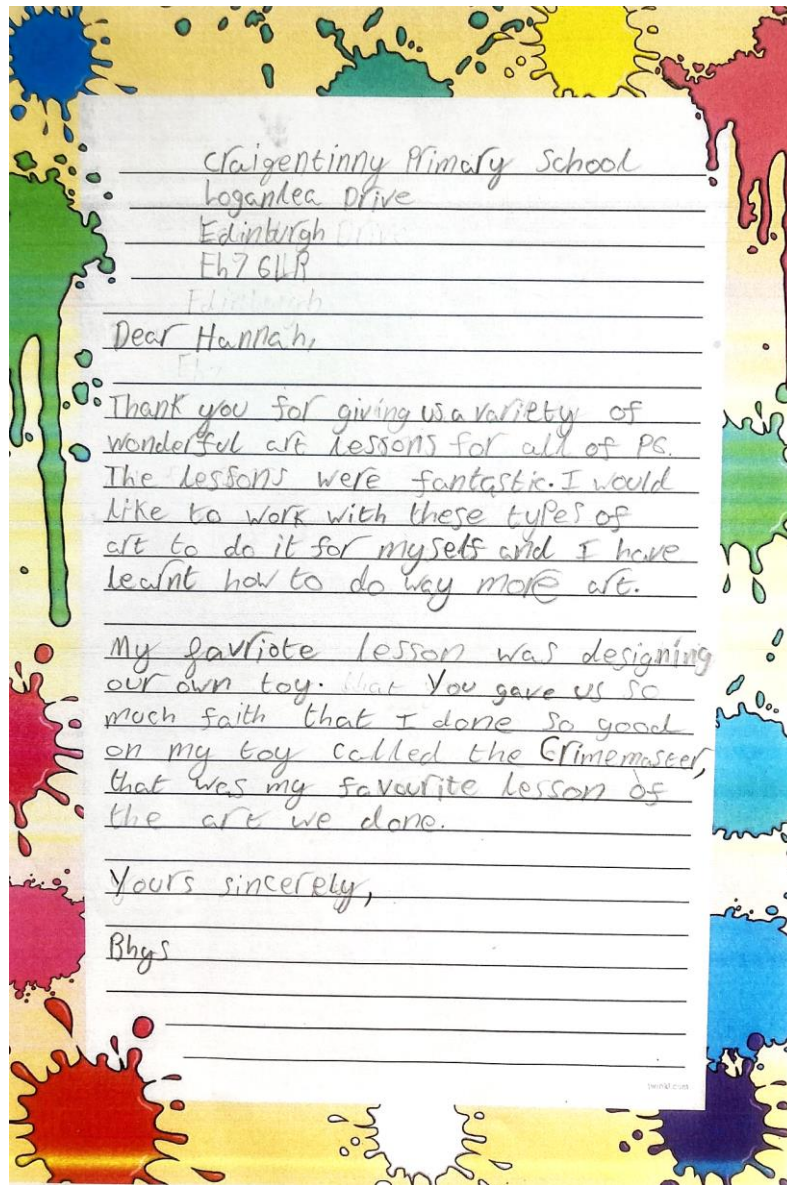 Craigentinny Primary School
Loganlea Drive
Edinburgh Drive
Eh7 6LLR
Edinburgh
Dear Hannah,
Eh7
Thank you for giving us a variety of
wonderful art lessons for all of P6.
The lessons were fantastic. I would
like to work with these types of
art to do it for myself and I have
learnt how to do way more art.
My favriote lesson was designing
our own toy. that You gave us so
much faith that I done so good
on my toy called the Crimemaster,
that was my favourite lesson of
the art we done.
Yours sincerely,
Rhys
twinkl.com